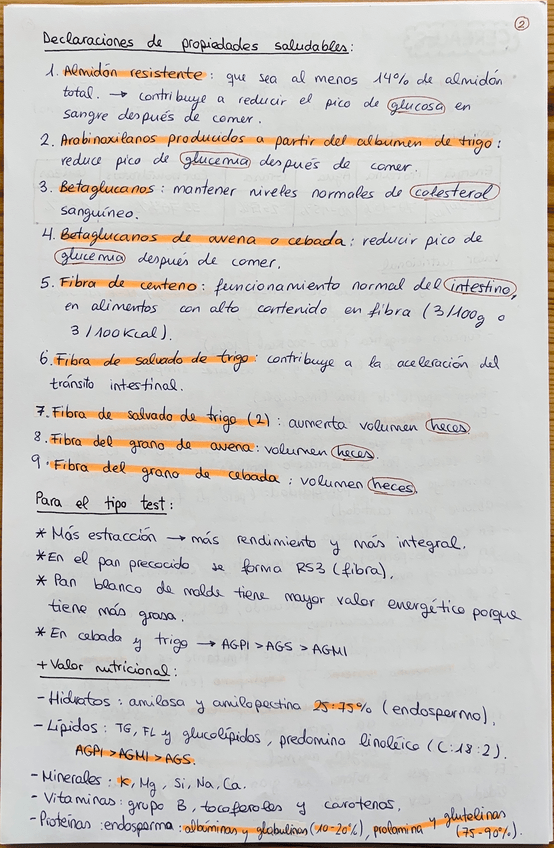 2
Declaraciones de propiedades saludables:
1. Almidón resistente: que sea al menos 14% de almidón
total. → contribuye a reducir el pico de glucosa en
sangre después de comer.
2. Arabinoxilanos producidos a partir del albumen de trigo:
reduce pico de glucemia después de comer.
3. Betaglucanos: mantener niveles normales de colesterol
sanguíneo.
4. Betaglucanos de avena o cebada: reducir pico de
glucemia después de comer.
5. Fibra de centeno: funcionamiento normal del intestino,
en alimentos con alto contenido en fibra (3/100g o
3/100Kcal).
6. Fibra de salvado de trigo: contribuye a la aceleración del
tránsito intestinal.
7. Fibra de salvado de trigo (2): aumenta volumen heces.
8. Fibra del grano de avena: volumen heces.
9. Fibra del grano de cebada: volumen heces.
Para el tipo test:
* Más estracción → más rendimiento y más integral.
* En el pan precocido se forma RS3 (fibra).
* Pan blanco de molde tiene mayor valor energético porque
tiene más grasa.
* En cebada y trigo → AGPI > AGS > AGMI
+ Valor nutricional:
- Hidratos: amilosa y amilopectina 25:75% (endospermo).
- Lípidos: TG, FL y glucolípidos, predomina linoléico (C:18:2).
AGPI > AGMI > AGS.
- Minerales: K, Mg, Si, Na, Ca.
- Vitaminas: grupo B, tocoferoles y carotenos.
- Proteínas: endosperma: albúminas y globulinas (10-20%), prolamina y glutelinas
(75-90%).